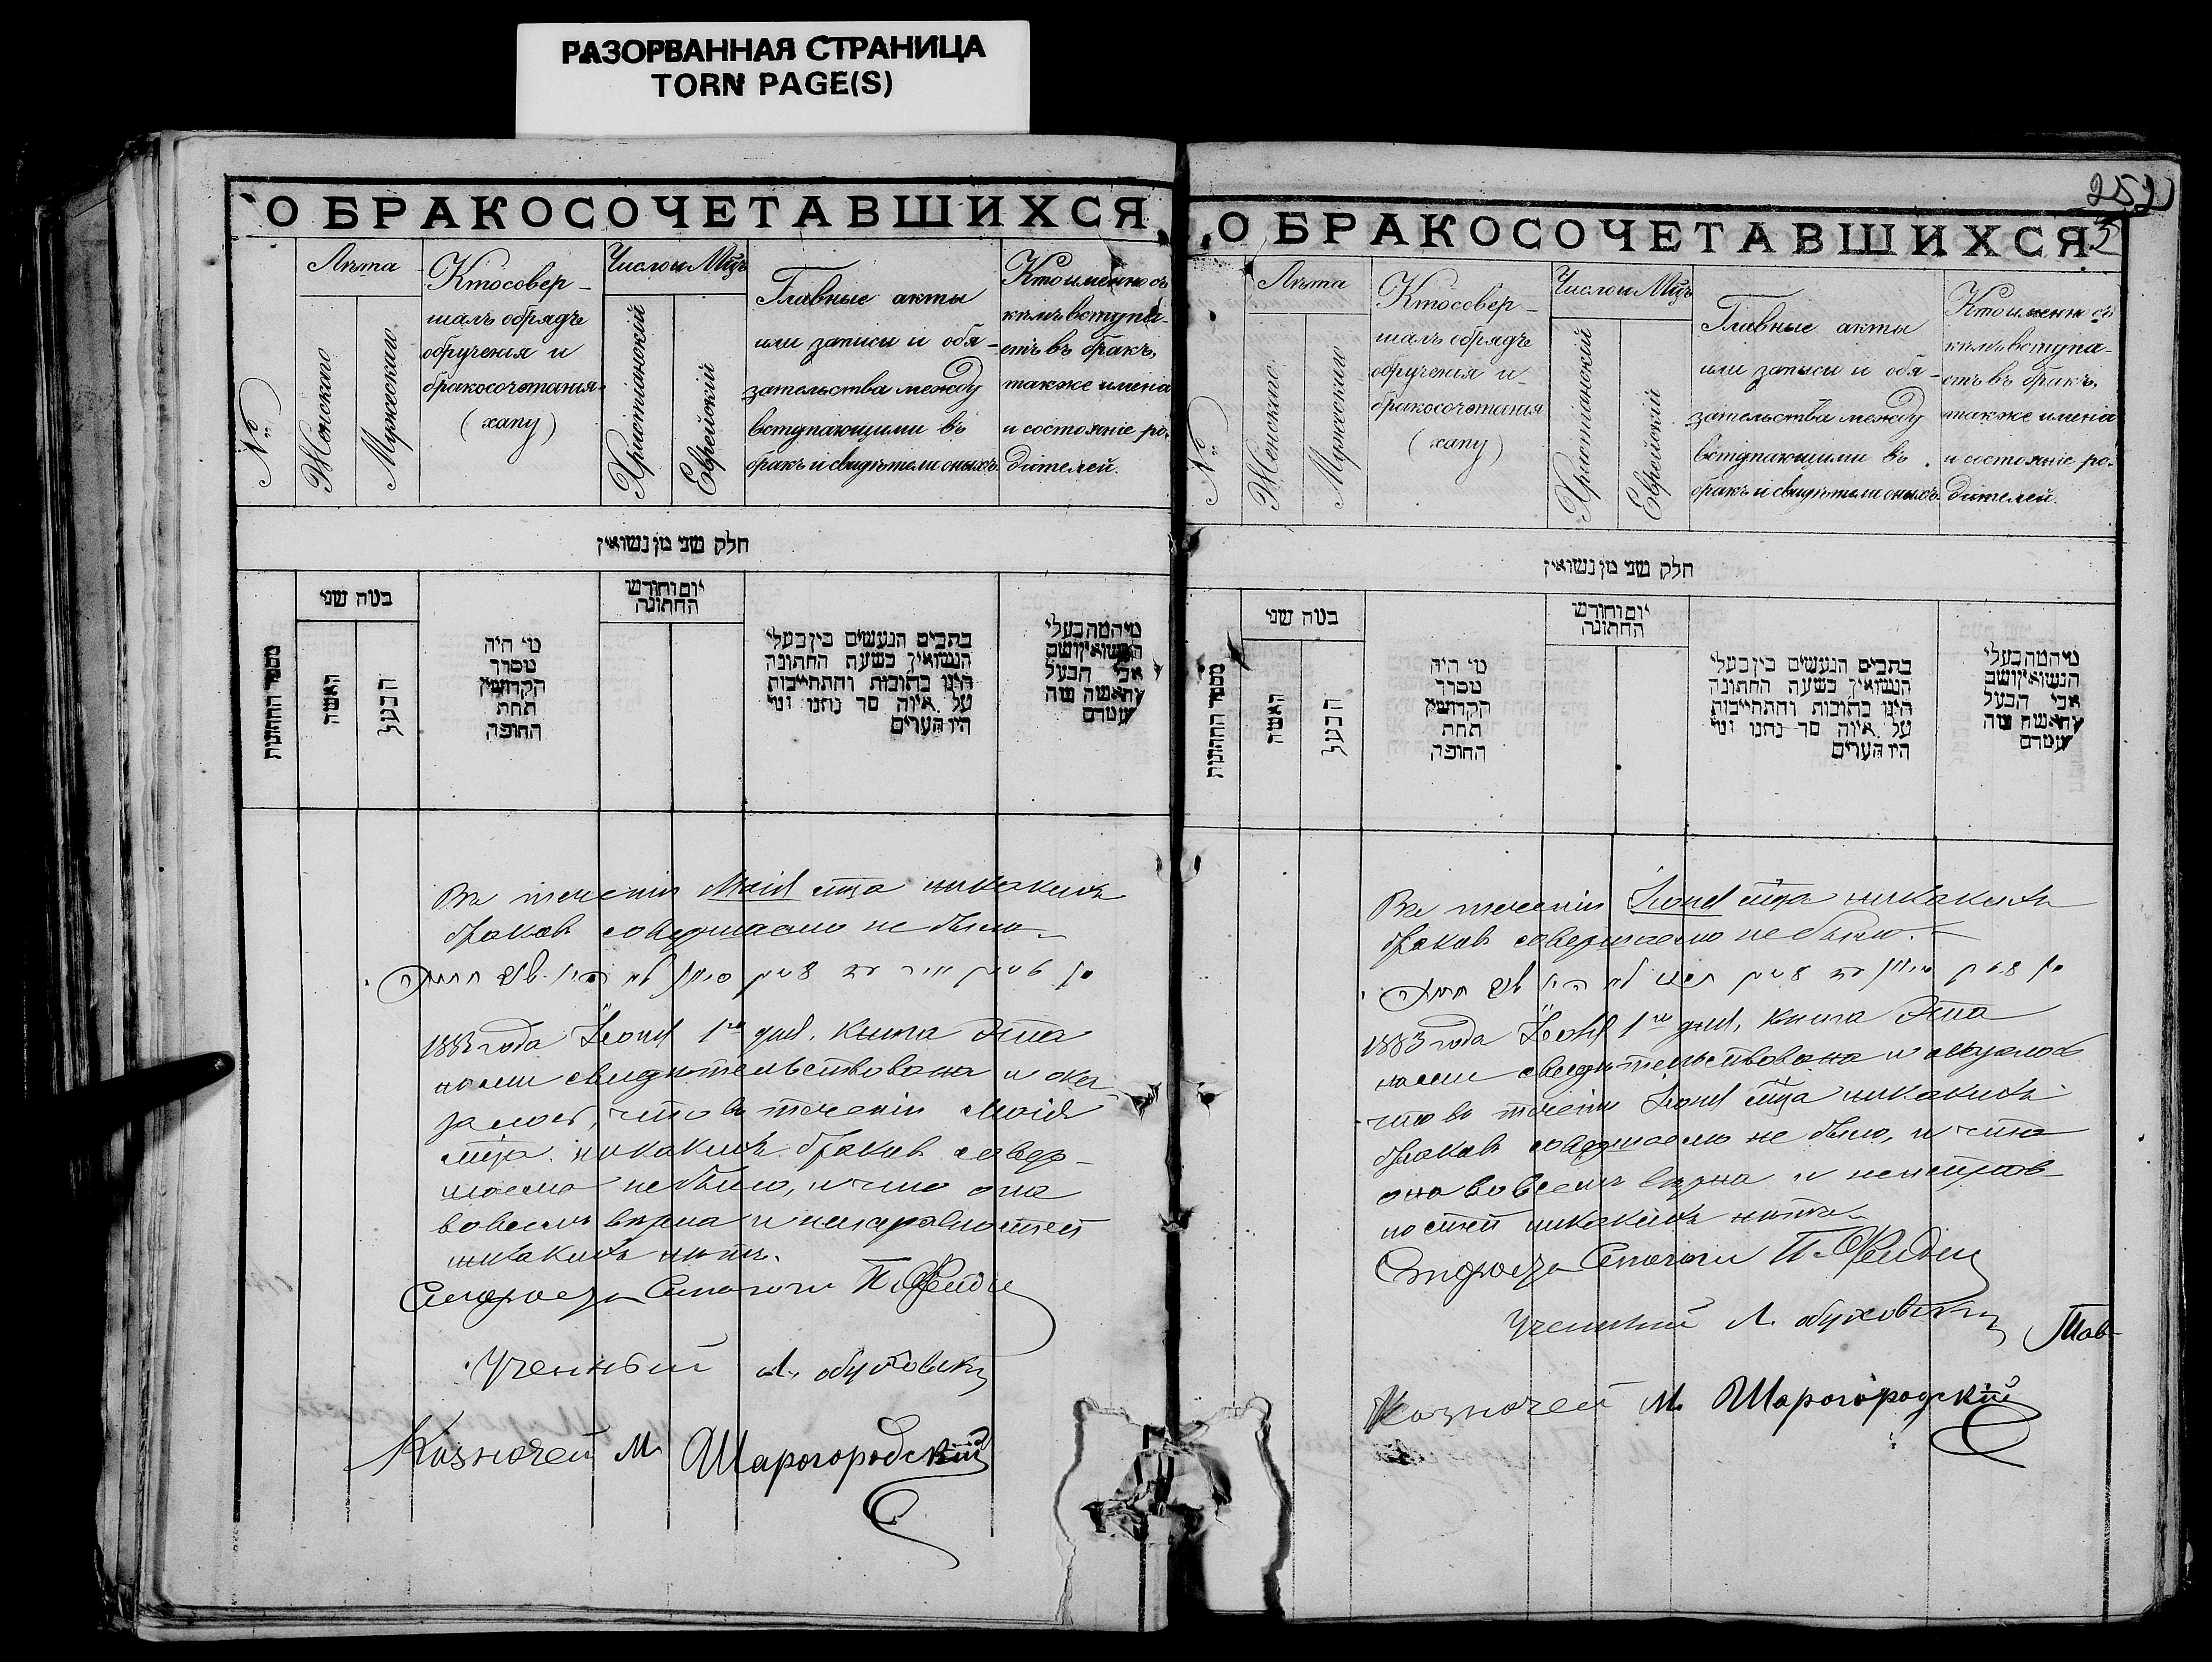 РАЗОРВАННАЯ СТРАНИЦА
TORN PAGE(S)
О БРАКОСОЧЕТАВШИХСЯ
№
Лѣта
Женскаго
Мужескаго
Кто совер-
шалъ обрядъ
обрученія и
бракосочетанія
(хапу)
Число и Мцъ
Христіанскій
Еврейскій
Главные акты
или записи и обя-
зательства между
вступающими въ
бракъ и свидѣтели оныхъ.
Кто именно съ
кѣмъ вступа-
етъ въ бракъ,
также имена
и состояніе ро-
дителей.
חלק שני מן נשואין
מספר החתונות
במה שני
האשה
הבעל
מי היה
מסדר
הקדושין
תחת
החופה
יום וחודש
החתונה
כתבים הנעשים בין בעלי
הנשואין בשעת החתונה
היינו כתובות והתחייבות
על איזה סך נתנו ומי
היו העדים
מי המה בעלי
הנשואין ושב
אבי הבעל
והאשה מה
שמם
Въ теченіи Маія мца никакихъ
браковъ совершаемо не было.
1883 года Іюня 1го дня, книга эта
нами свидѣтельствована и ока-
залось, что въ теченіи Маія
мца никакихъ браковъ совер-
шаемо не было, и что она
во всемъ вѣрна и неисправностей
никакихъ нѣтъ.
Староста Синагоги
Ученный
Казначей М. Шарогородскій
252
5
О БРАКОСОЧЕТАВШИХСЯ
№
Лѣта
Женскаго
Мужескаго
Кто совер-
шалъ обрядъ
обрученія и
бракосочетанія
(хапу)
Число и Мцъ
Христіанскій
Еврейскій
Главные акты
или записи и обя-
зательства между
вступающими въ
бракъ и свидѣтели оныхъ.
Кто именно съ
кѣмъ вступа-
етъ въ бракъ,
также имена
и состояніе ро-
дителей.
חלק שני מן נשואין
מספר החתונות
במה שני
האשה
הבעל
מי היה
מסדר
הקדושין
תחת
החופה
יום וחודש
החתונה
כתבים הנעשים בין בעלי
הנשואין בשעת החתונה
היינו כתובות והתחייבות
על איזה סך נתנו ומי
היו העדים
מי המה בעלי
הנשואין ושב
אבי הבעל
והאשה מה
שמם
Въ теченіи Іюня мца никакихъ
браковъ совершаемо не было.
1883 года Іюля 1го дня, книга эта
нами свидѣтельствована и оказалось
что въ теченіи Іюня мца никакихъ
браковъ совершаемо не было, и что
она во всемъ вѣрна и неисправ-
ностей никакихъ нѣтъ.
Староста Синагоги
Ученный
Казначей М. Шарогородскій